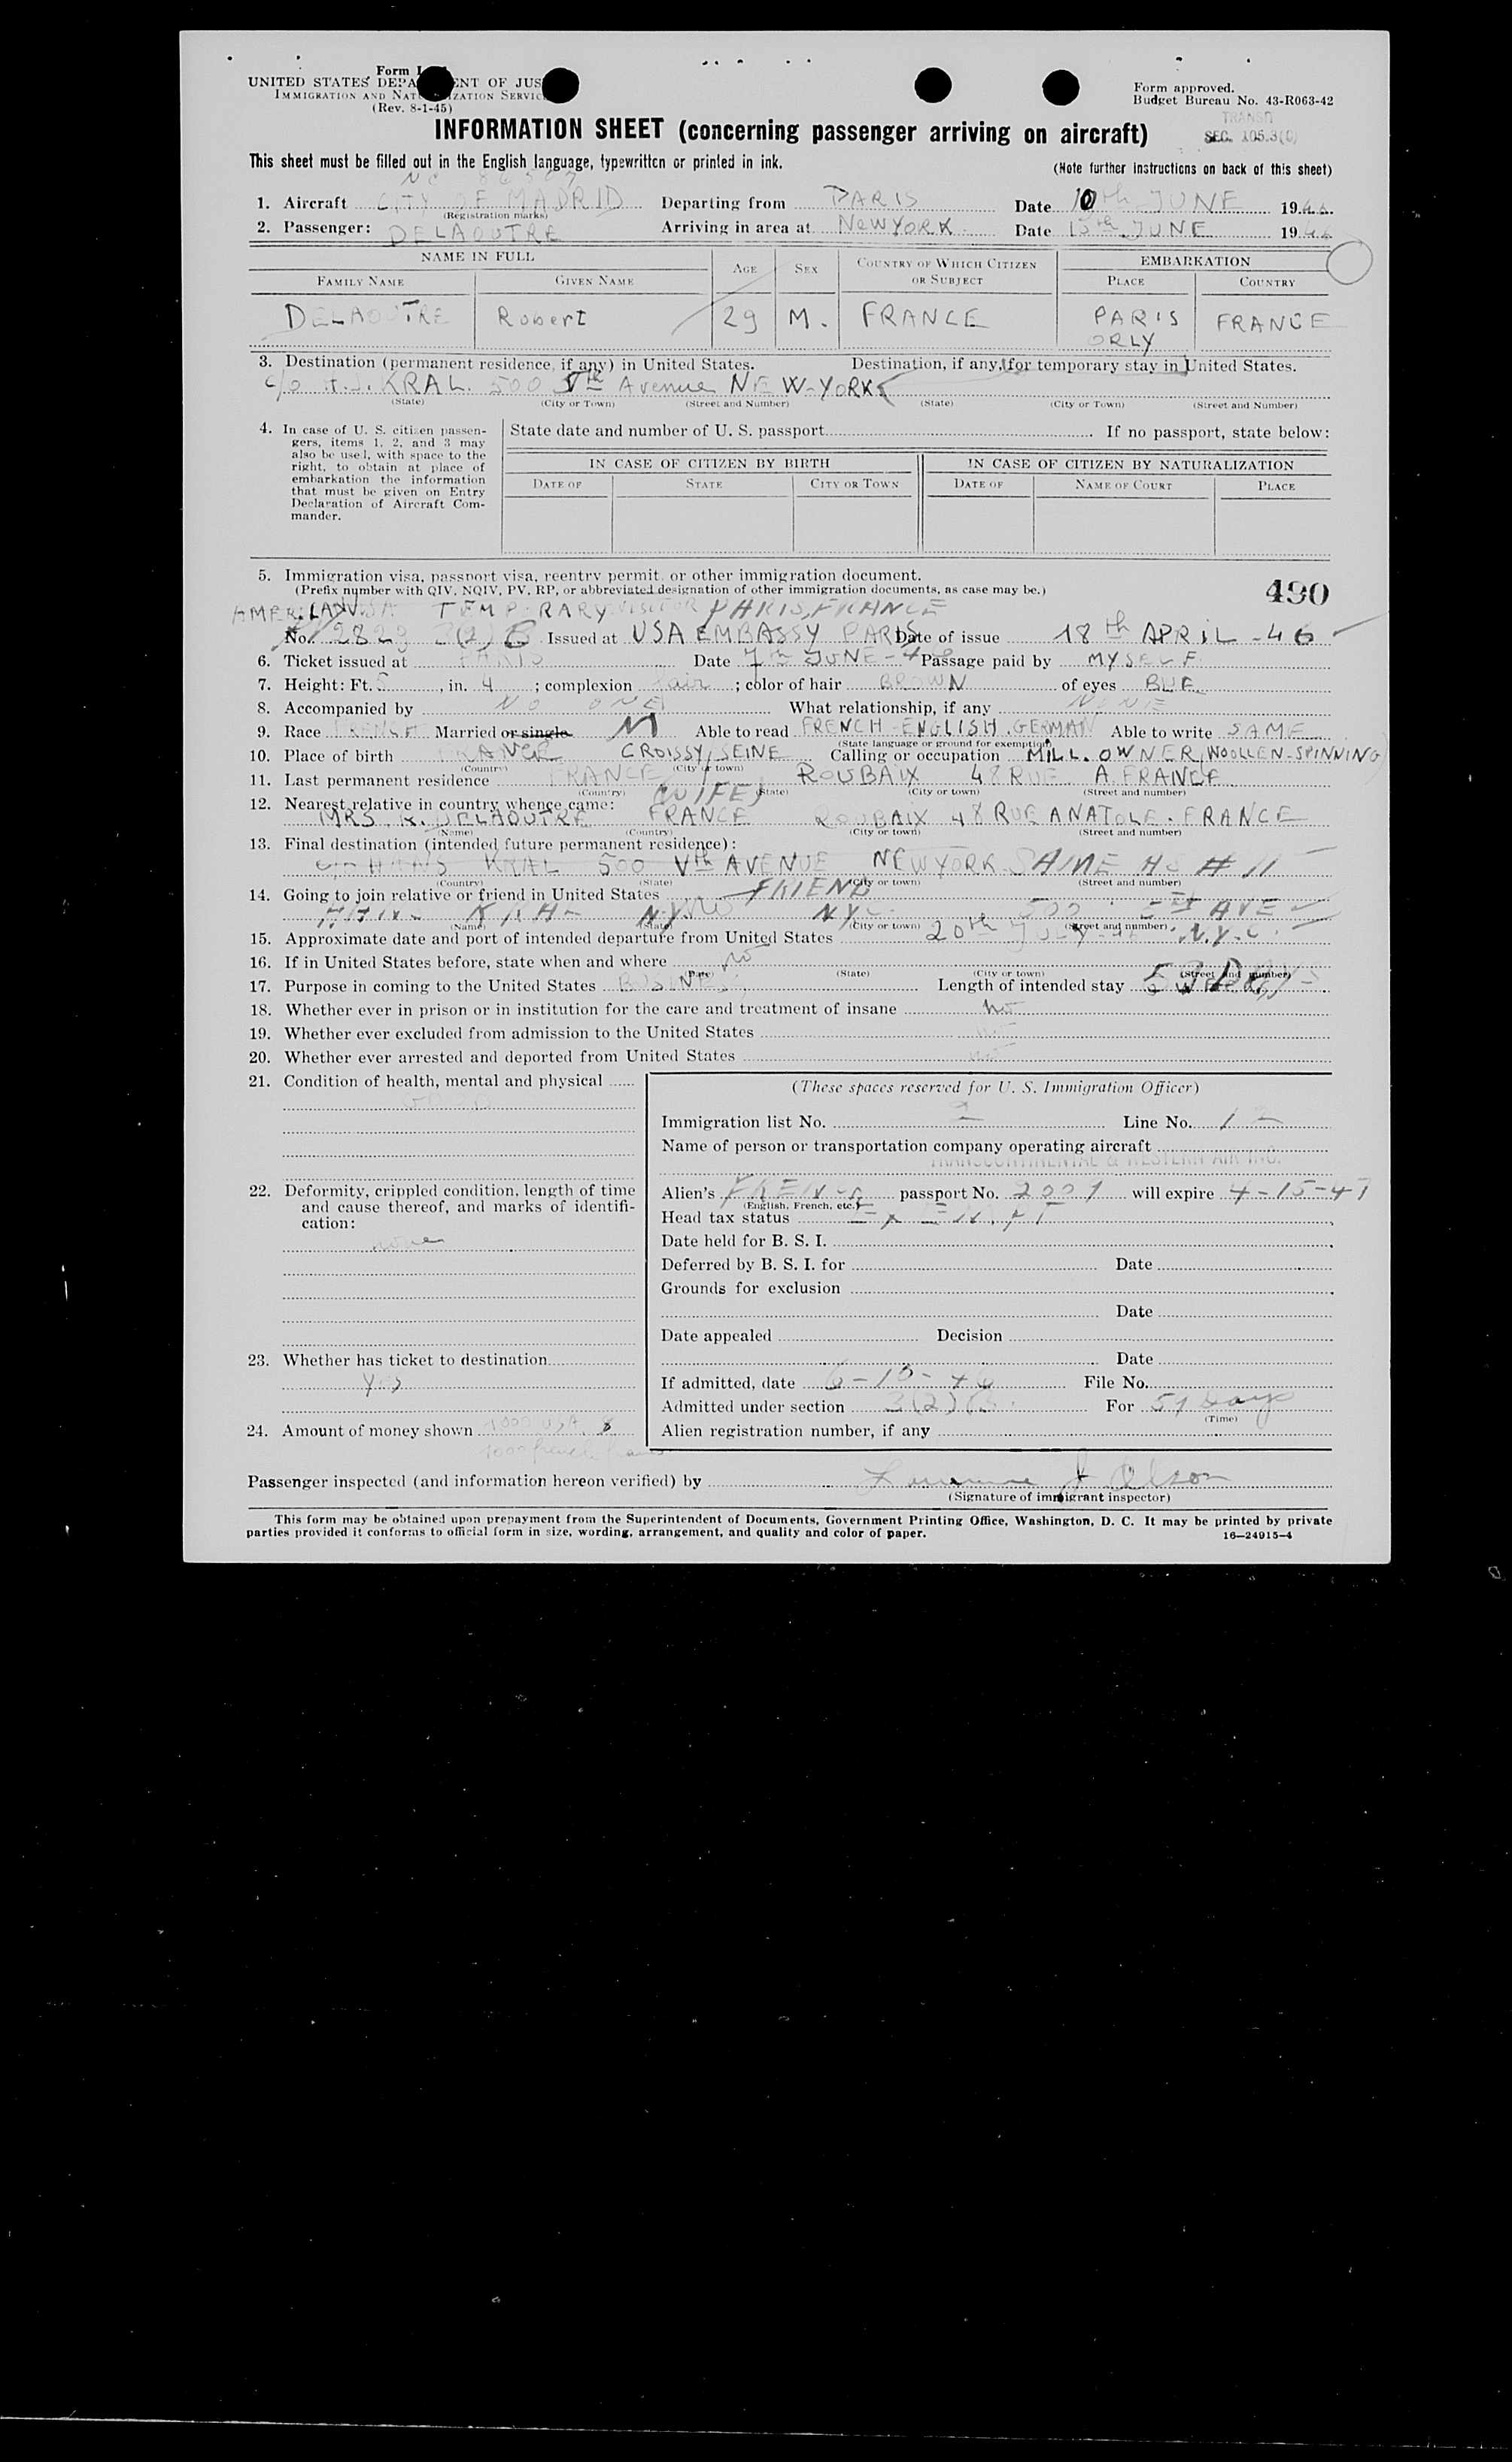 Form
UNITED STATES DEPA ENT OF JUS
IMMIGRATION AND NAT IZATION SERVIC
(Rev. 8-1-45)
Form approved.
Budget Bureau No. 43-R063-42
TRANSIT
SEC. 105.3(
INFORMATION SHEET (concerning passenger arriving on aircraft)
This sheet must be filled out in the English language, typewritten or printed in ink.
(Note further instructions on back of this sheet)
NC
1. Aircraft CITY OF MADRID Departing from PARIS Date 10th JUNE 1946
(Registration marks)
2. Passenger: DELAOUTRE Arriving in area at NEW YORK Date JUNE 1946
NAME IN FULL AGE SEX COUNTRY OF WHICH CITIZEN OR SUBJECT EMBARKATION
FAMILY NAME GIVEN NAME PLACE COUNTRY
DELAOUTRE Robert 29 M. FRANCE PARIS ORLY FRANCE
3. Destination (permanent residence, if any) in United States. Destination, if any, for temporary stay in United States.
c/o KRAL. 500 Vth Avenue NEW-YORK
(State) (City or Town) (Street and Number) (State) (City or Town) (Street and Number)
4. In case of U. S. citizen passen-
gers, items 1, 2, and 3 may
also be used, with space to the
right, to obtain at place of
embarkation the information
that must be given on Entry
Declaration of Aircraft Com-
mander.
State date and number of U. S. passport If no passport, state below:
IN CASE OF CITIZEN BY BIRTH IN CASE OF CITIZEN BY NATURALIZATION
DATE OF STATE CITY OR TOWN DATE OF NAME OF COURT PLACE
5. Immigration visa, passport visa, reentry permit, or other immigration document.
(Prefix number with QIV, NQIV, PV, RP, or abbreviated designation of other immigration documents, as case may be.)
490
TEMPORARY VISITOR PARIS, FRANCE
No. 2829 3(2) B Issued at USA EMBASSY PARIS Date of issue 18th APRIL -46
6. Ticket issued at PARIS Date 7th JUNE-46 Passage paid by MYSELF
7. Height: Ft. 5, in. 4; complexion fair; color of hair BROWN of eyes BUE
8. Accompanied by NO ONE What relationship, if any NONE
9. Race FRENCH Married or single M Able to read FRENCH-ENGLISH.GERMAN Able to write SAME
(State language or ground for exemption)
10. Place of birth FRANCE CROISSY/SEINE Calling or occupation MILL.OWNER (WOOLLEN-SPINNING)
(Country) (City or town)
11. Last permanent residence FRANCE ROUBAIX 48 RUE A.FRANCE
(Country) (State) (City or town) (Street and number)
12. Nearest relative in country whence came: (WIFE)
MRS R. DELAOUTRE FRANCE ROUBAIX 48 RUE ANATOLE.FRANCE
(Name) (Country) (City or town) (Street and number)
13. Final destination (intended future permanent residence):
KRAL 500 Vth AVENUE NEW YORK SAME AS # 11
(Country) (State) (City or town) (Street and number)
14. Going to join relative or friend in United States FRIEND
KRAL N.Y. N.Y.C. 500 5th AVE
(Name) (State) (City or town) (Street and number)
15. Approximate date and port of intended departure from United States 20th JULY-46 N.Y.C.
16. If in United States before, state when and where no
(Date) (State) (City or town) (Street and number)
17. Purpose in coming to the United States BUSINESS Length of intended stay DAYS
18. Whether ever in prison or in institution for the care and treatment of insane no
19. Whether ever excluded from admission to the United States no
20. Whether ever arrested and deported from United States no
21. Condition of health, mental and physical
GOOD
22. Deformity, crippled condition, length of time
and cause thereof, and marks of identifi-
cation:
none
23. Whether has ticket to destination
Yes
24. Amount of money shown 1000 USA $
1000 french
(These spaces reserved for U. S. Immigration Officer)
Immigration list No. 2 Line No. 12
Name of person or transportation company operating aircraft
TRANSCONTINENTAL & WESTERN AIR INC.
Alien's FRENCH passport No. 2001 will expire 4-15-47
(English, French, etc.)
Head tax status EXEMPT
Date held for B. S. I.
Deferred by B. S. I. for Date
Grounds for exclusion
Date
Date appealed Decision
Date
If admitted, date File No.
Admitted under section 3(2)B. For 59 Days
(Time)
Alien registration number, if any
Passenger inspected (and information hereon verified) by J Olson
(Signature of immigrant inspector)
This form may be obtained upon prepayment from the Superintendent of Documents, Government Printing Office, Washington, D. C. It may be printed by private
parties provided it conforms to official form in size, wording, arrangement, and quality and color of paper.
16—24915-4